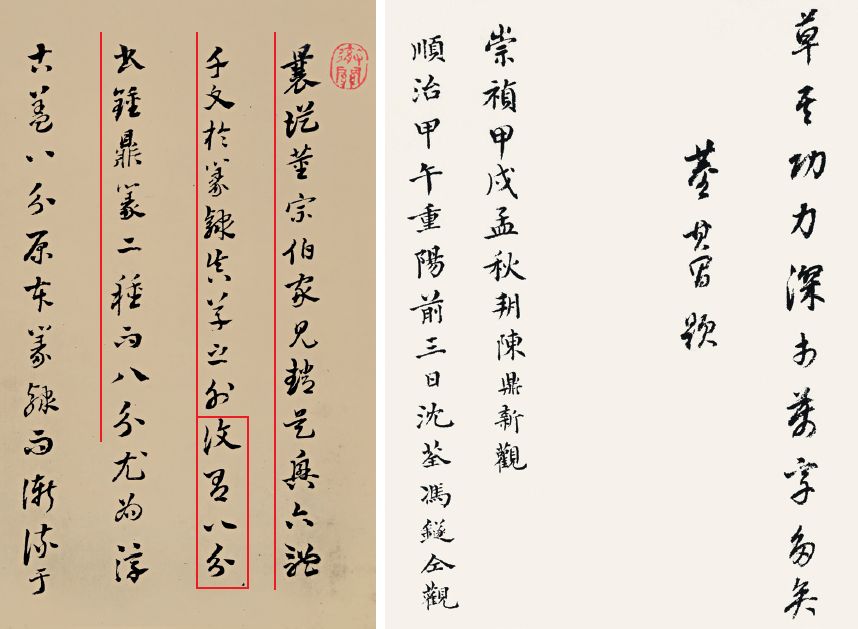 曩從董宗伯家見趙吳興六體
千文於篆隸真草之外復有八分
鍾鼎篆二種而八分尤為淳
古蓋八分原本篆隸而漸流于
草功力深字多矣
董其昌題
崇禎甲戌孟秋朔陳鼎新觀
順治甲午重陽前三日沈荃馮仝觀